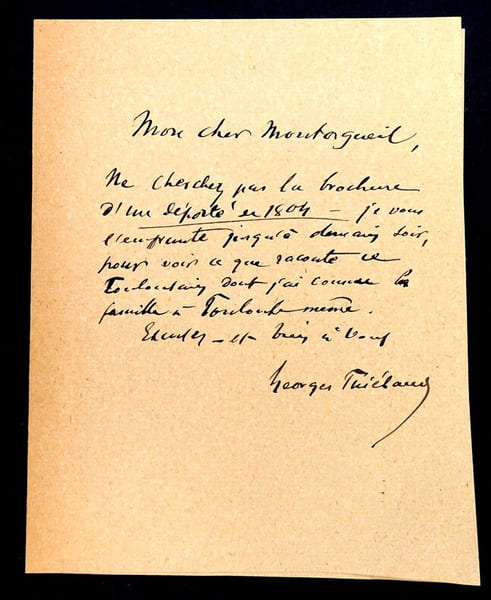 Mon cher Montorgueil,
Ne cherchez pas la brochure
d'un déporté en 1804 – je vous
l'emprunte jusqu'à demain soir,
pour voir ce que raconte ce
Toulousain dont j'ai connu la
famille à Toulouse même.
Excuses – et bien à vous
Georges Thiébaud